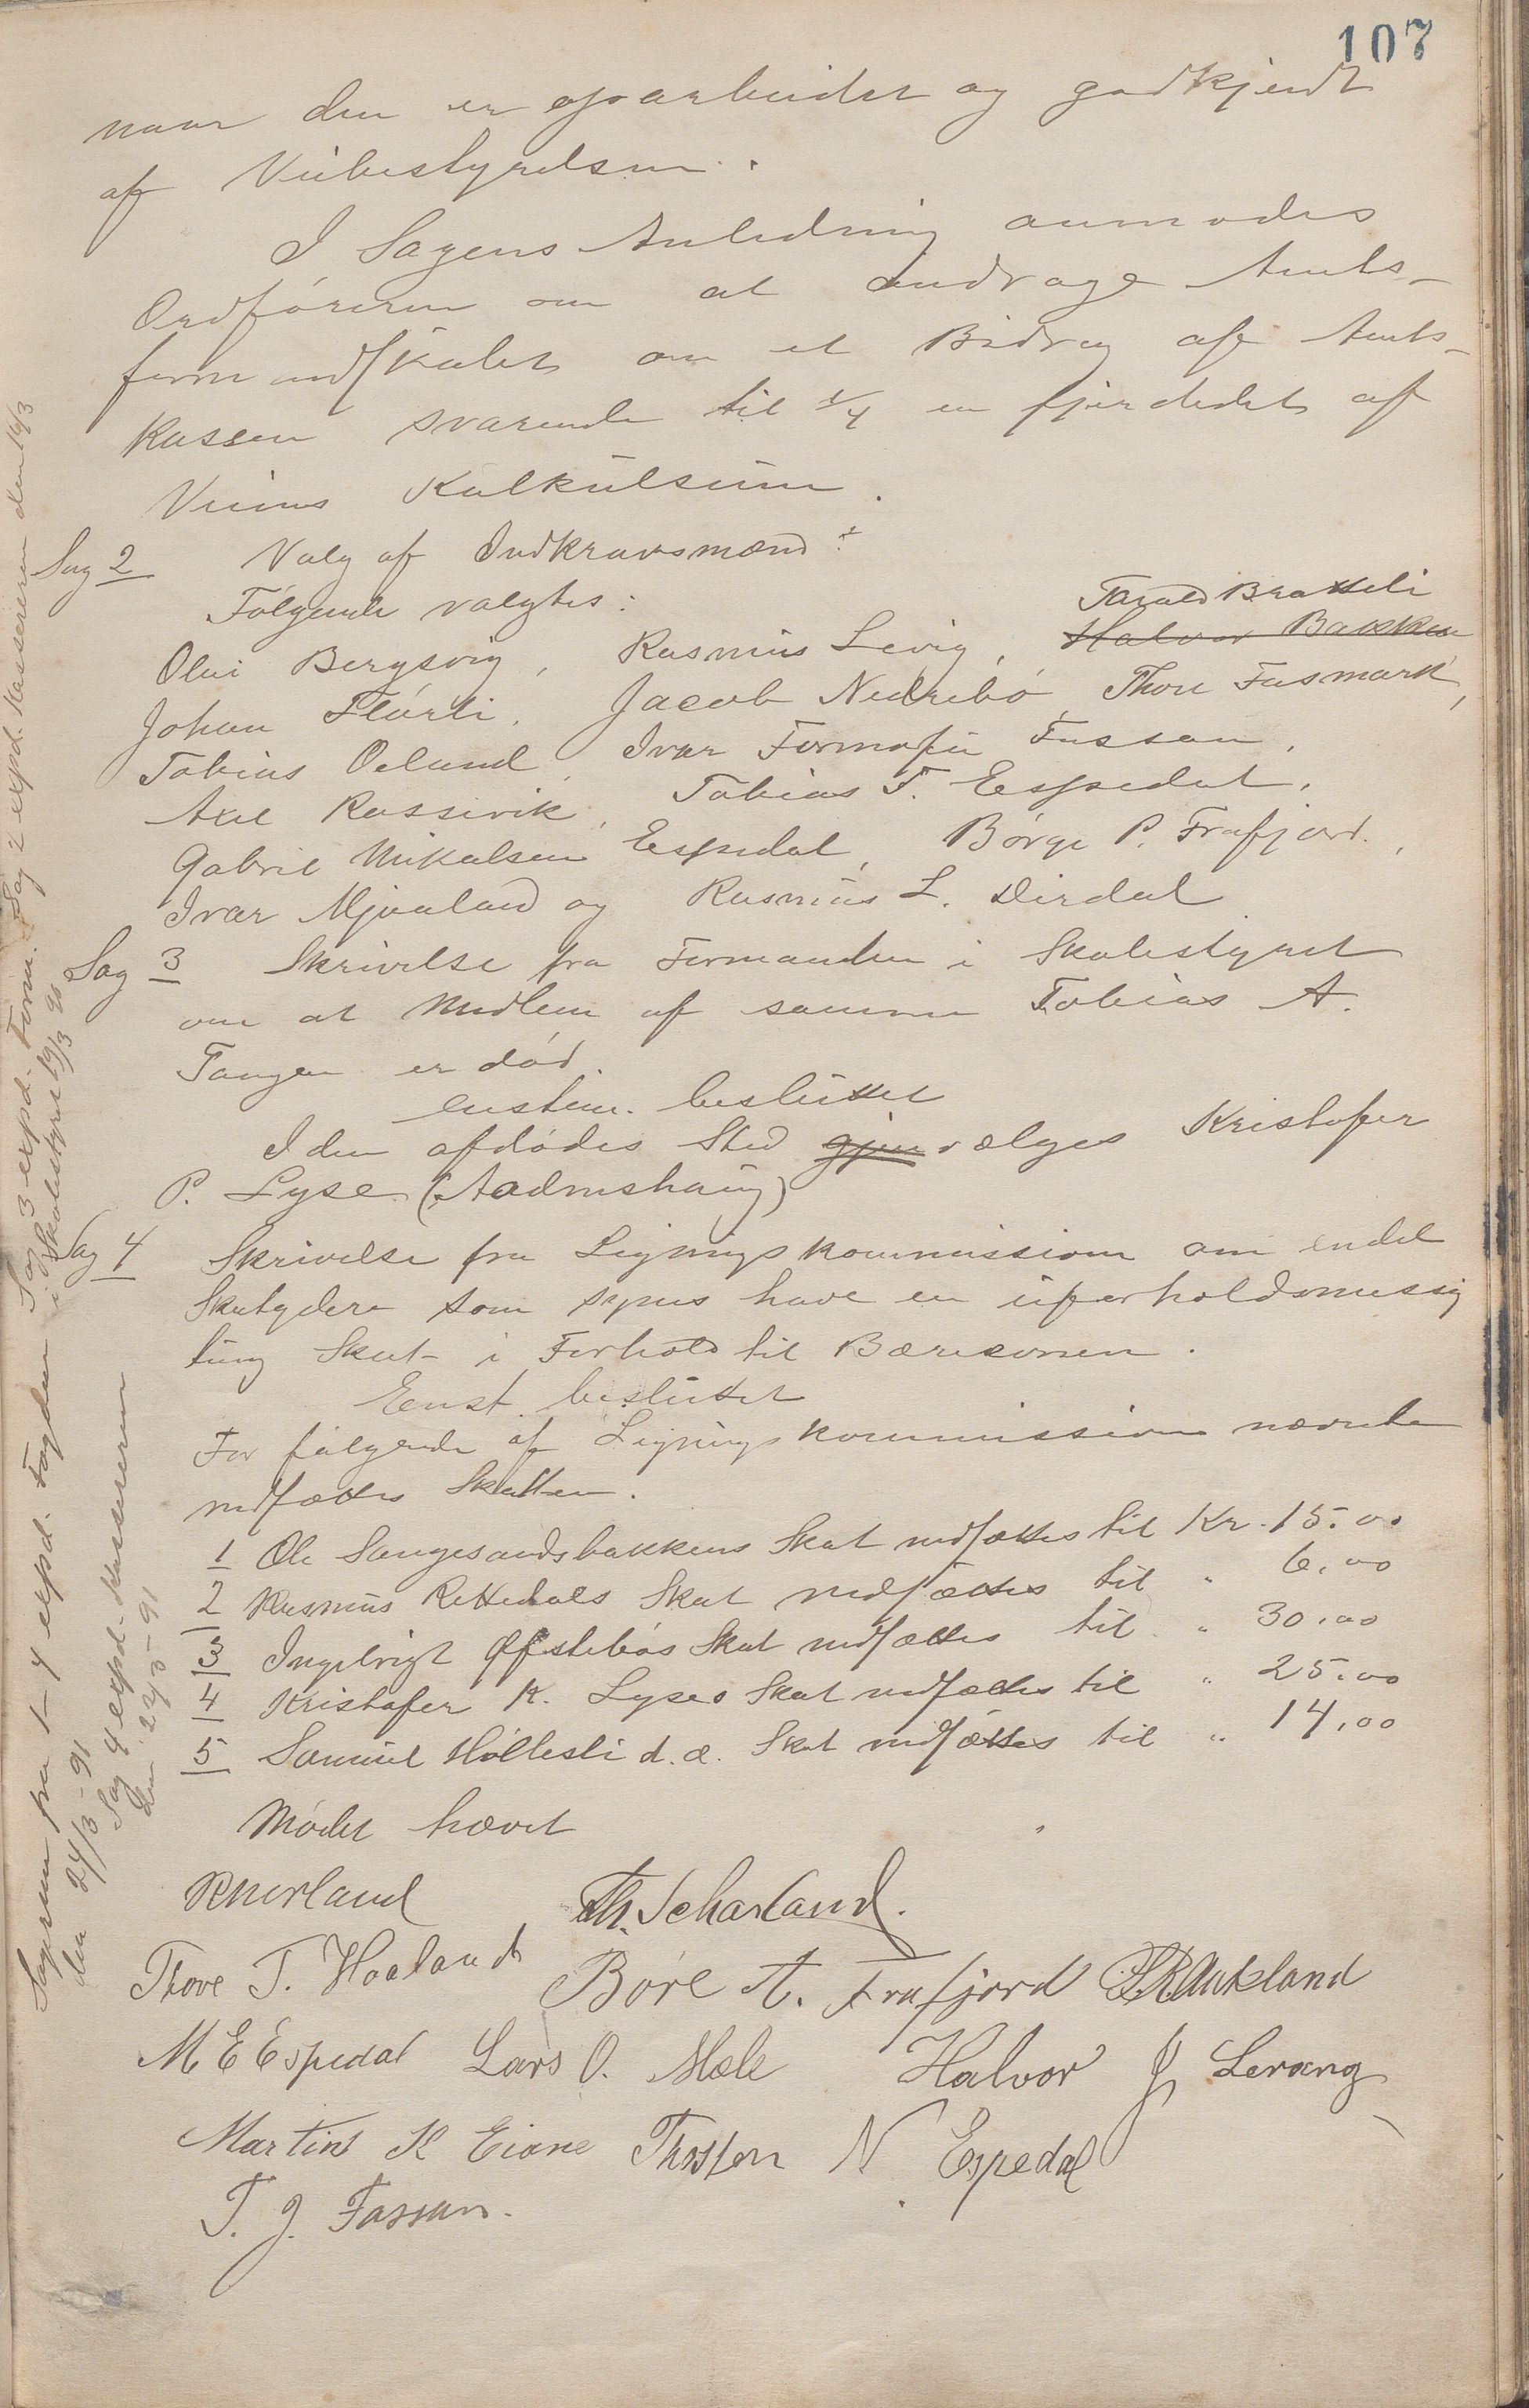 107
naar den er oparbeidet og godkjendt
af Veibestyrelsen.
I Sagens Anledning anmodes
Ordføreren om at andrage Amts-
formandskabet om et Bidrag af Amts-
kassen svarende til 1/4 en fjerdedel af
Veiens Kalkulsum.
Sag 2 Valg af Indkravsmænd:
Følgende valgtes:
Tarald Bratteli
Olai Bergsvig, Rasmus Levig, Halvor Bakken
Johan Flørli, Jacob Nedrebø, Thore Fusmark,
Tobias Øelund, Ivar Fossan,
Axel Rossevik, Tobias T. Espedal,
Gabriel Mikalsen Espedal, Børge P. Frafjord,
Ivar Mjaaland og Rasmus L. Dirdal
Sag 3 Skrivelse fra Formanden i Skolestyret
om at Medlem af samme Tobias A.
Tangen er død.
Enstem. besluttet
I den afdødes Sted gjen vælges Kristofer
P. Lyse (Aadneshaug)
Sag 4 Skrivelse fra Ligningskommissionen om endel
Skatydere som synes have en uforholdsmessig
tung Skat i Forhold til Bæreevnen.
Enst. besluttet
For følgende af Ligningskommissionen nævnte
nedsættes Skatten.
1 Ole Sangesandsbakkens Skat nedsættes til Kr. 15.00
2 Rasmus Rettedals Skat nedsættes til " 6.00
3 Ingebrigt Øfstebøs Skat nedsættes til " 30.00
4 Kristofer K. Lyses Skat nedsættes til " 25.00
5 Samuel Høllesli d. æ. Skat nedsættes til " 14.00
Mødet hævet
RNerland Th. Scharland.
Thore T. Haaland Børe A. Frafjord TRAukland
M E Espedal Lars O. Mæle Halvor J Lerang
Martin K Eiane Thosten N Espedal
T. J. Fossan.
Sag 3 expd. Form. Sag 2 expd. Kassereren den 16/3
i Skolestyret 19/3 90
Sagerne fra 1-4 expd. Fogden
den 24/3-91
Sag 4 expd. Kassereren
den 27/3-91